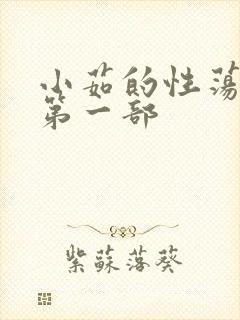 小茹的性荡
第一部
紫蘇落葵